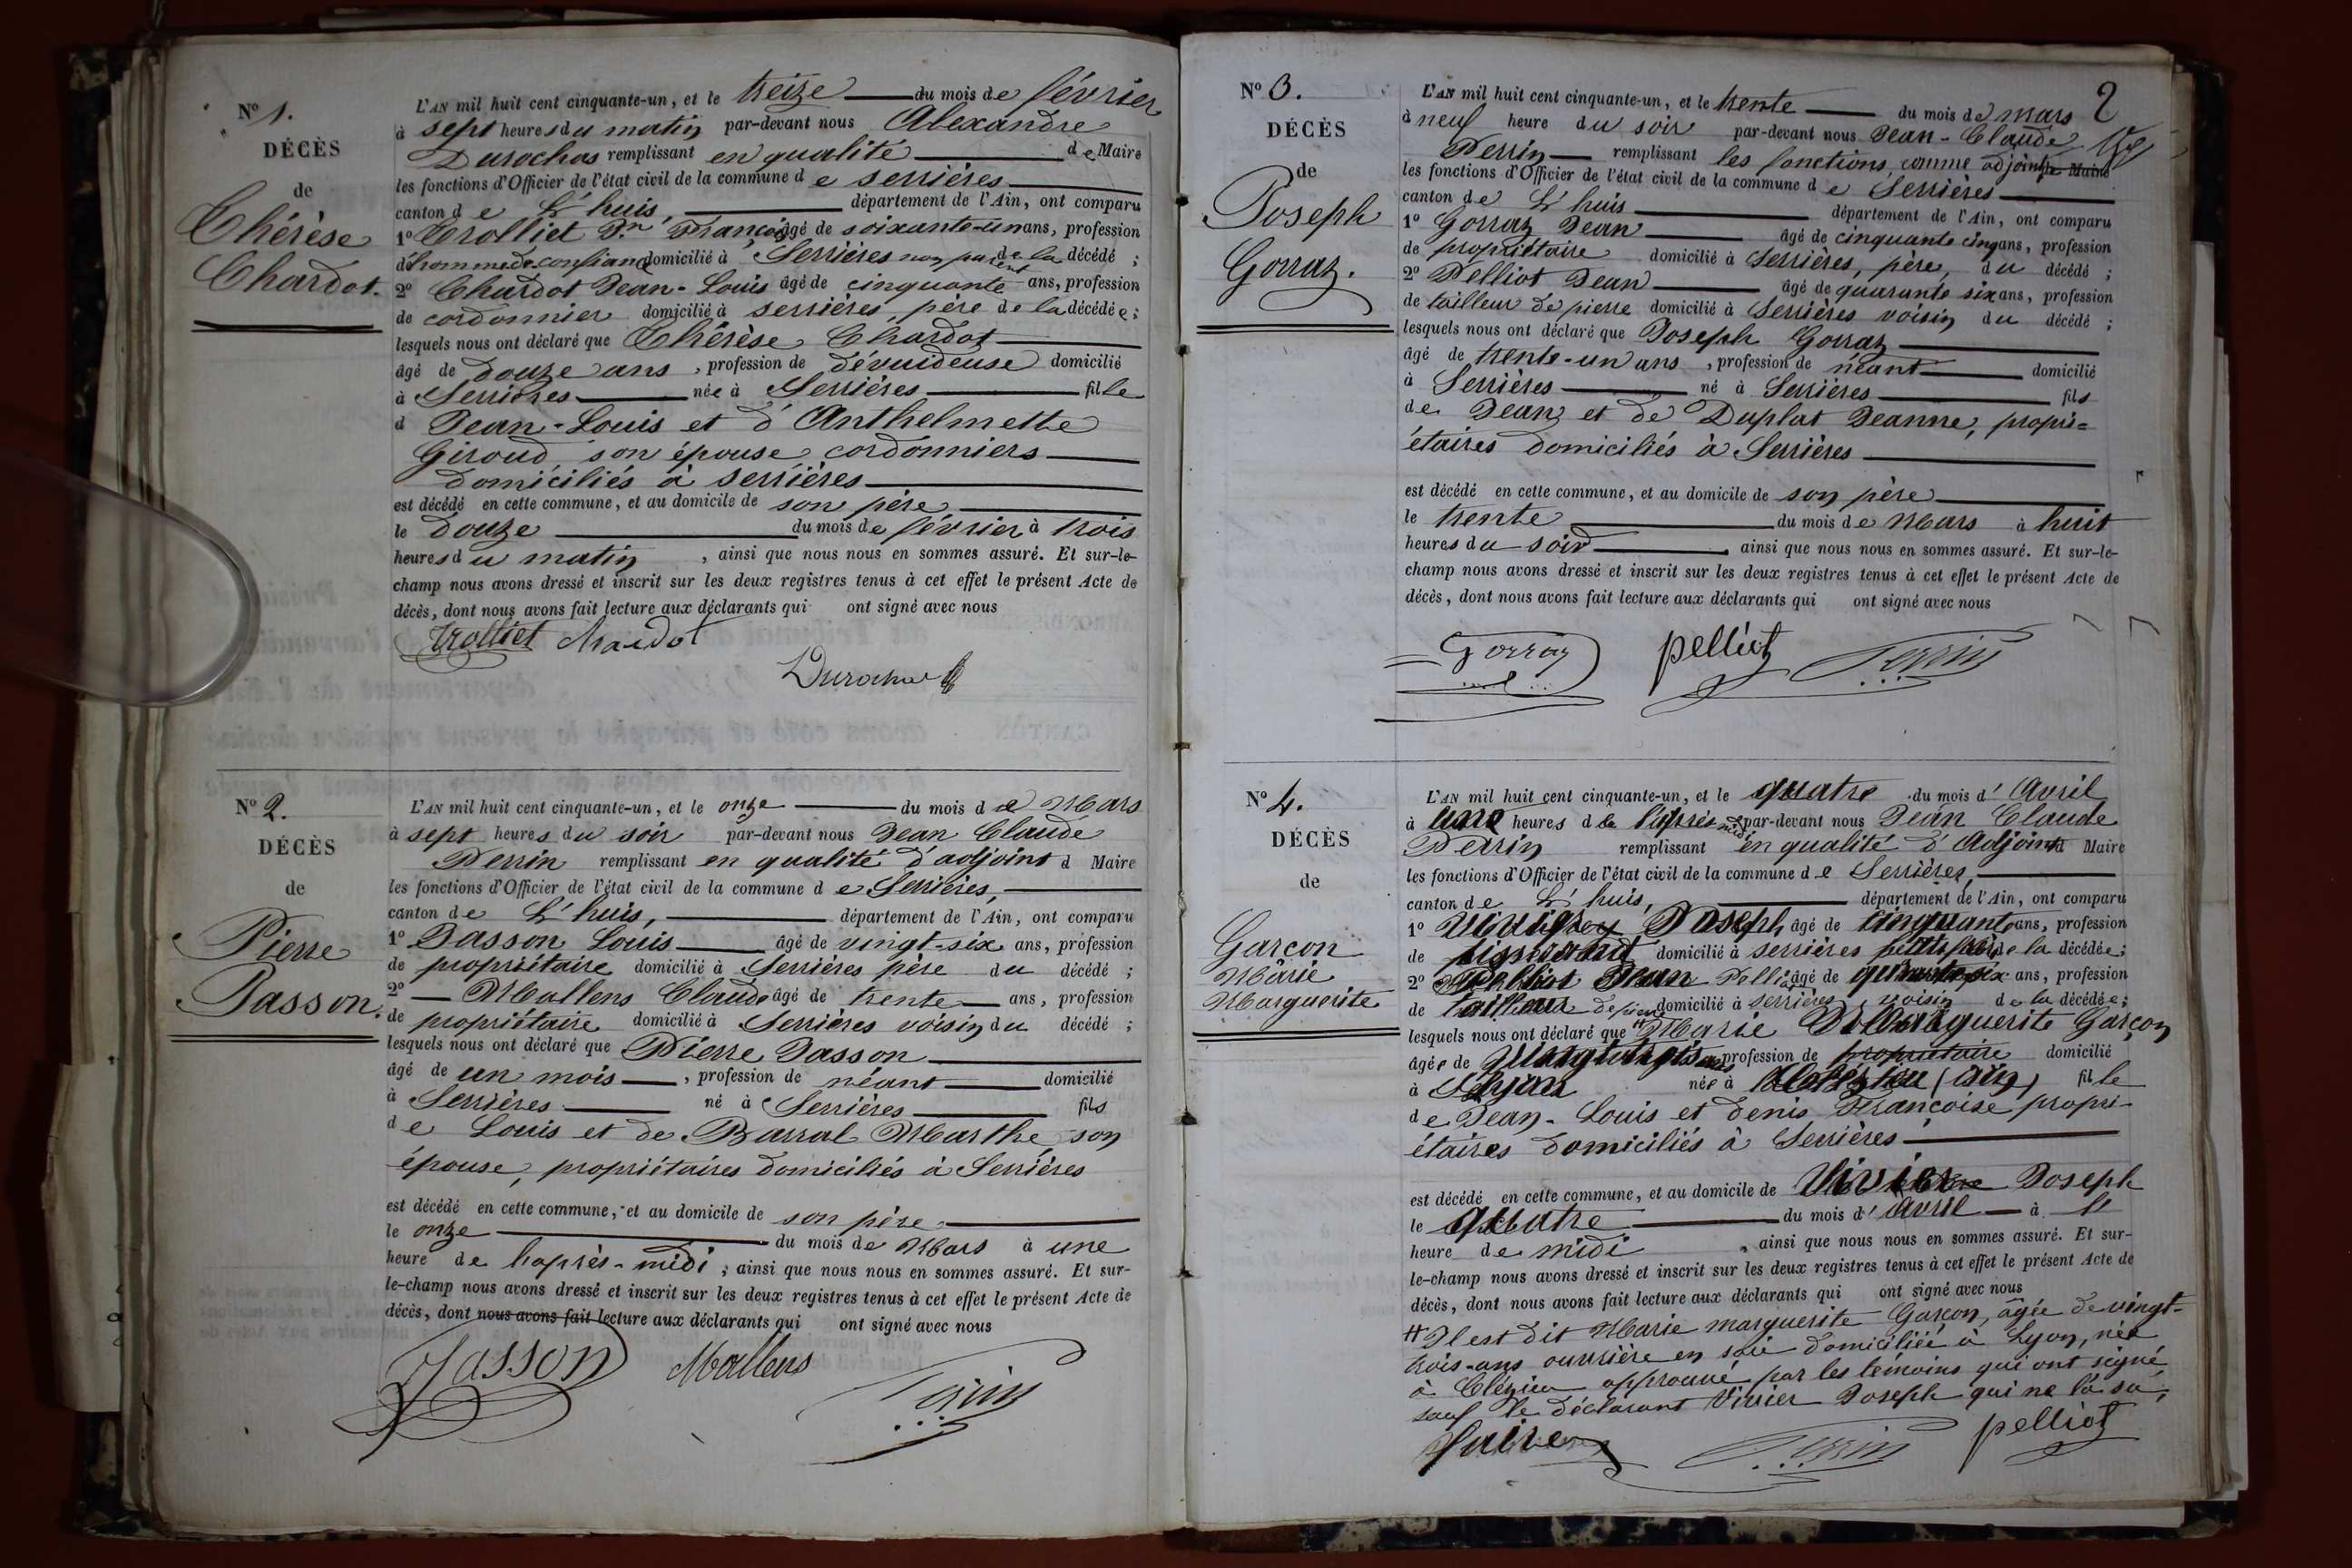 N° 1.
DÉCÈS
de
Thérèse
Chardot.
L'AN mil huit cent cinquante-un, et le treize du mois de février
à sept heures du matin par-devant nous Alexandre
Durochas remplissant en qualité de Maire
les fonctions d'Officier de l'état civil de la commune de serrières
canton de L'huis, département de l'Ain, ont comparu
1° Trolliet Jn François âgé de soixante-un ans, profession
d'homme de confiance domicilié à Serrières non parent de la décédé ;
2° Chardot Jean-Louis âgé de cinquante ans, profession
de cordonnier domicilié à serrières, père de la décédée ;
lesquels nous ont déclaré que Thérèse Chardot
âgé de douze ans, profession de dévuideuse domicilié
à Serrières née à Serrières fille
d Jean-Louis et d'Anthelmette
Giroud son épouse cordonniers
domiciliés à serrières
est décédé en cette commune, et au domicile de son père
le douze du mois de février à trois
heures du matin, ainsi que nous nous en sommes assuré. Et sur-le-
champ nous avons dressé et inscrit sur les deux registres tenus à cet effet le présent Acte de
décès, dont nous avons fait lecture aux déclarants qui ont signé avec nous
Trolliet Chardot
Durochas
N° 2.
DÉCÈS
de
Pierre
Jasson.
L'AN mil huit cent cinquante-un, et le onze du mois de Mars
à sept heures du soir par-devant nous Jean Claude
Perrin remplissant en qualité d'adjoint d Maire
les fonctions d'Officier de l'état civil de la commune de Serrières,
canton de L'huis, département de l'Ain, ont comparu
1° Jasson Louis âgé de vingt-six ans, profession
de propriétaire domicilié à Serrières père du décédé ;
2° Mallens Claude âgé de trente ans, profession
de propriétaire domicilié à Serrières voisin du décédé ;
lesquels nous ont déclaré que Pierre Jasson
âgé de un mois, profession de néant domicilié
à Serrières né à Serrières fils
de Louis et de Barral Marthe son
épouse, propriétaires domiciliés à Serrières
est décédé en cette commune, et au domicile de son père
le onze du mois de Mars à une
heure de l'après-midi ; ainsi que nous nous en sommes assuré. Et sur-
le-champ nous avons dressé et inscrit sur les deux registres tenus à cet effet le présent Acte de
décès, dont nous avons fait lecture aux déclarants qui ont signé avec nous
Jasson Mallens Perrin
2
N° 3.
DÉCÈS
de
Joseph
Gorraz.
L'AN mil huit cent cinquante-un, et le trente du mois de mars
à neuf heure du soir par-devant nous Jean-Claude
Perrin remplissant les fonctions comme adjoint de Maire
les fonctions d'Officier de l'état civil de la commune de Serrières
canton de L'huis département de l'Ain, ont comparu
1° Gorraz Jean âgé de cinquante cinq ans, profession
de propriétaire domicilié à Serrières, père, du décédé ;
2° Pelliot Jean âgé de quarante six ans, profession
de tailleur de pierre domicilié à Serrières voisin du décédé ;
lesquels nous ont déclaré que Joseph Gorraz
âgé de trente-un ans, profession de néant domicilié
à Serrières né à Serrières fils
de Jean et de Duplat Jeanne, propri=
étaires domiciliés à Serrières
est décédé en cette commune, et au domicile de son père
le trente du mois de Mars à huit
heures du soir, ainsi que nous nous en sommes assuré. Et sur-le-
champ nous avons dressé et inscrit sur les deux registres tenus à cet effet le présent Acte de
décès, dont nous avons fait lecture aux déclarants qui ont signé avec nous
Gorraz pelliot Perrin
N° 4.
DÉCÈS
de
Garçon
Marie
Marguerite
L'AN mil huit cent cinquante-un, et le quatre du mois d'Avril
à une heures de l'après midi par-devant nous Jean Claude
Perrin remplissant en qualité d'Adjoint Maire
les fonctions d'Officier de l'état civil de la commune de Serrières,
canton de L'huis, département de l'Ain, ont comparu
1° Joseph âgé de cinquante ans, profession
de tisserand domicilié à serrières de la décédée ;
2° Jean Pelliot âgé de ans, profession
de tailleur de pierre domicilié à serrières, voisin de la décédée ;
lesquels nous ont déclaré que Marie Marguerite Garçon
âgée de vingt trois ans, profession de propriétaire domicilié
à Lyon née à (ain) fille
de Jean-Louis et denis Françoise propri-
étaires domiciliés à Serrières
est décédé en cette commune, et au domicile de Vivier Joseph
le quatre du mois d'Avril à l'
heure de midi, ainsi que nous nous en sommes assuré. Et sur-
le-champ nous avons dressé et inscrit sur les deux registres tenus à cet effet le présent Acte de
décès, dont nous avons fait lecture aux déclarants qui ont signé avec nous
# Il est dit Marie marguerite Garçon, âgée de vingt-
trois-ans ouvrière en soie domiciliée à Lyon, née
à Clézieu approuvé par les témoins qui ont signé
sauf le déclarant Vivier Joseph qui ne l'a su,
faire Perrin pelliot